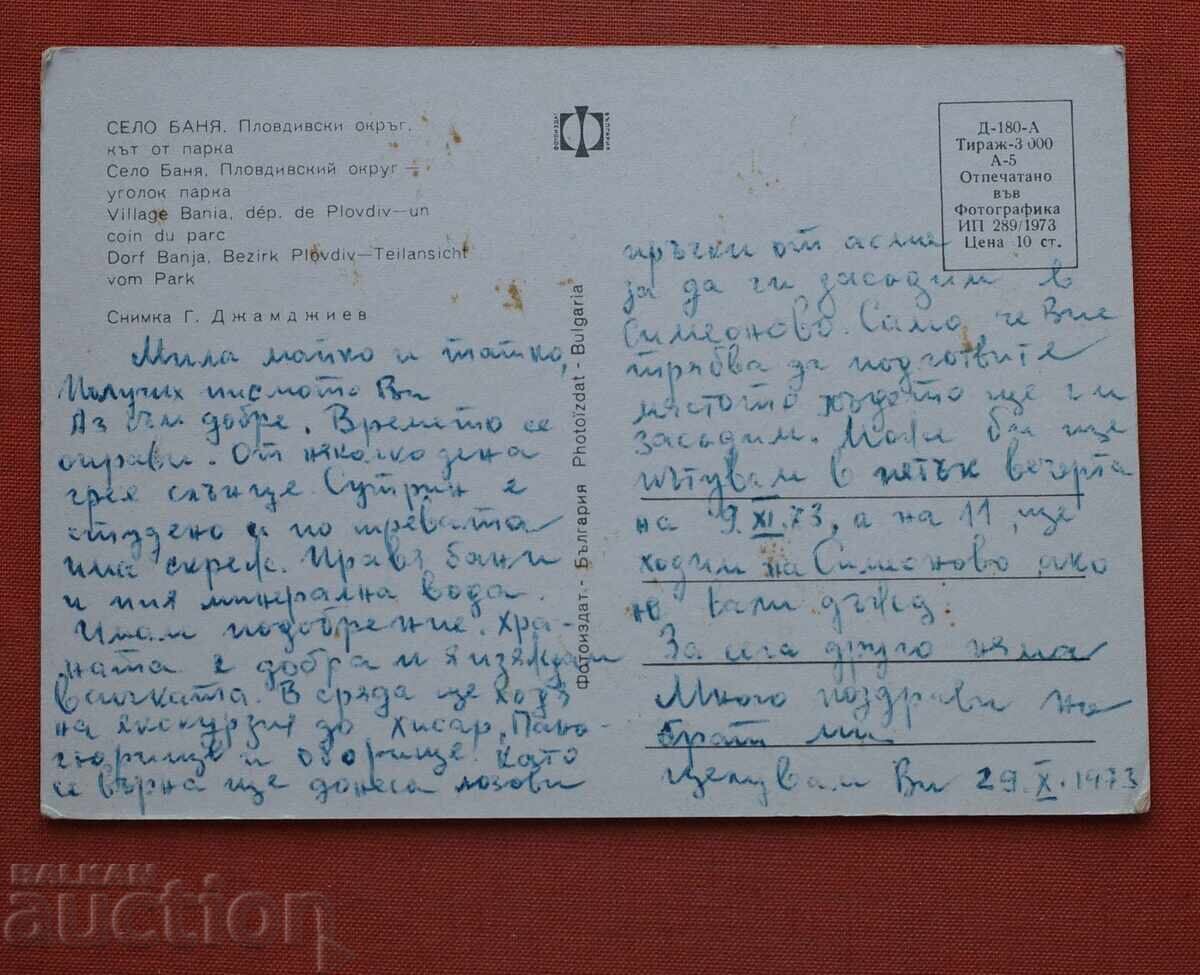 СЕЛО БАНЯ. Пловдивски окръг.
кът от парка
Село Баня, Пловдивский округ—
уголок парка
Village Bania, dép. de Plovdiv—un
coin du parc
Dorf Banja, Bezirk Plovdiv—Teilansicht
vom Park
Снимка Г. Джамджиев
Мила майко и татко,
Получих писмото Ви
Аз съм добре. Времето се
оправи. От няколко дена
грея слънце. Сутрин е
студено и по тревата
има скреж. Правя бани
и пия минерална вода.
Имам подобрение. Хра-
ната е добра и я изяждам
всичката. В сряда ще ходя
на екскурзия до Хисар, Пана-
гюрище и Оборище. Като
се върна ще донеса лозови
ФОТОИЗДАТ
Фотоиздат.- България Photoïzdat - Bulgaria
Д-180-А
Тираж-3 000
А-5
Отпечатано
във
Фотографика
ИП 289/1973
Цена 10 ст.
пръчки от асме
за да ги засадим в
Симеоново. Само, че Вие
трябва да подготвите
мястото където ще ги
засадим. Може би ще
пътувам в петък вечерта
на 9.XI.73, а на 11, ще
ходим на Симеоново, ако
не вали дъжд.
За сега друго няма
Много поздрави на
брат ми
целувам Ви 29.X.1973
BALKAN
auction